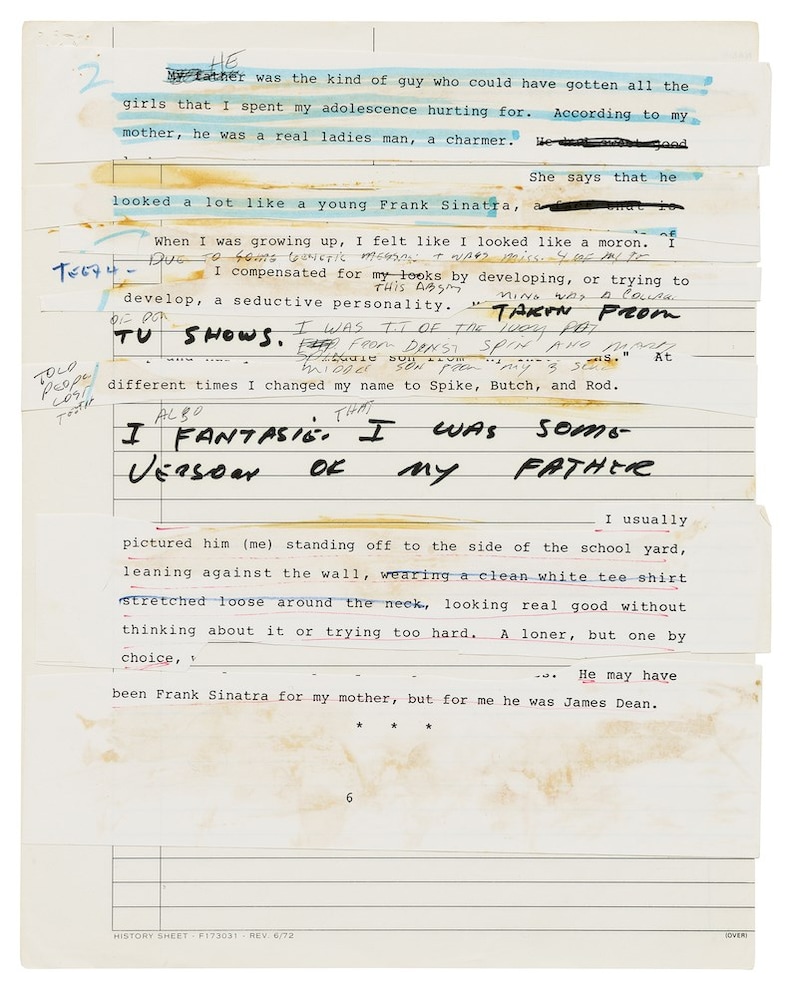 2
HE
My father was the kind of guy who could have gotten all the
girls that I spent my adolescence hurting for. According to my
mother, he was a real ladies man, a charmer. He
She says that he
looked a lot like a young Frank Sinatra, a face that is
of
When I was growing up, I felt like I looked like a moron. I
DUE TO SOME GENETIC I WAS MISS. 4 OF MY
TEETH - I compensated for my looks by developing, or trying to
THIS
develop, a seductive personality. WAS A COLLAGE
TAKEN FROM
TV SHOWS. I WAS
FROM SPIN AND
son At
MIDDLE SON FROM MY 3 SONS
TOLD
PEOPLE
LOST
TEETH
different times I changed my name to Spike, Butch, and Rod.
ALSO THAT
I FANTASIE. I WAS SOME
VERSION OF MY FATHER
I usually
pictured him (me) standing off to the side of the school yard,
leaning against the wall, wearing a clean white tee shirt
stretched loose around the neck, looking real good without
thinking about it or trying too hard. A loner, but one by
choice,
He may have
been Frank Sinatra for my mother, but for me he was James Dean.
* * *
6
HISTORY SHEET - F173031 - REV. 6/72
(OVER)